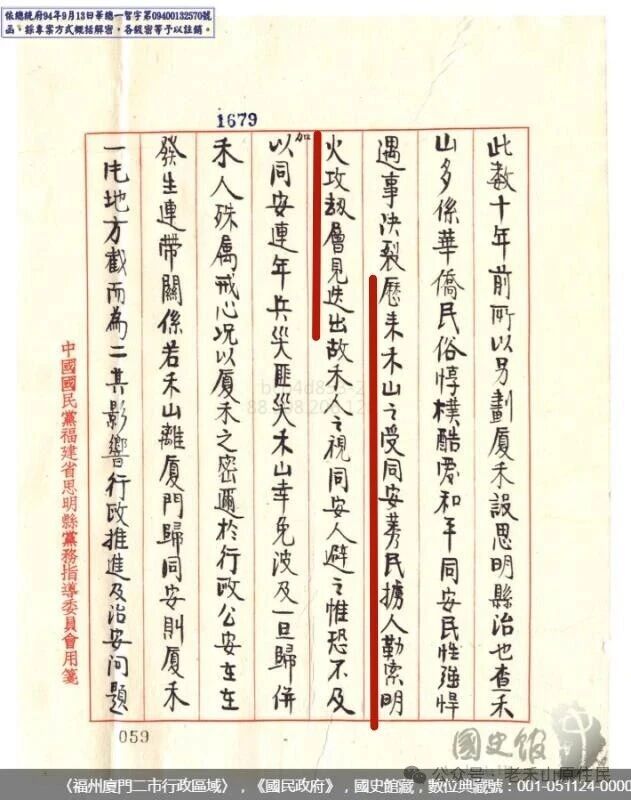 依總統府94年9月13日華總一智字第09400132570號
函,採專案方式概括解密,各級密等予以註銷。
1679
此數十年前所以另劃廈禾設思明縣治也查禾
山多係華僑民俗惇樸酷愛和平同安民性強悍
遇事決裂歷來禾山之受同安莠民擄人勒索明
火攻劫層見迭出故禾人之視同安人避之惟恐不及
加以同安連年兵災匪災禾山幸免波及一旦歸併
禾人殊厲戒心况以廈禾之密邇於行政公安在在
發生連帶關係若禾山離廈門歸同安則廈禾
一片地方截而為二其影響行政推進及治安問題
中國國民黨福建省思明縣黨務指導委員會用箋
059
國史館
公众号:老禾山原住民
《福州廈門二市行政區域》,《國民政府》,國史館藏,數位典藏號:001-051124-0000